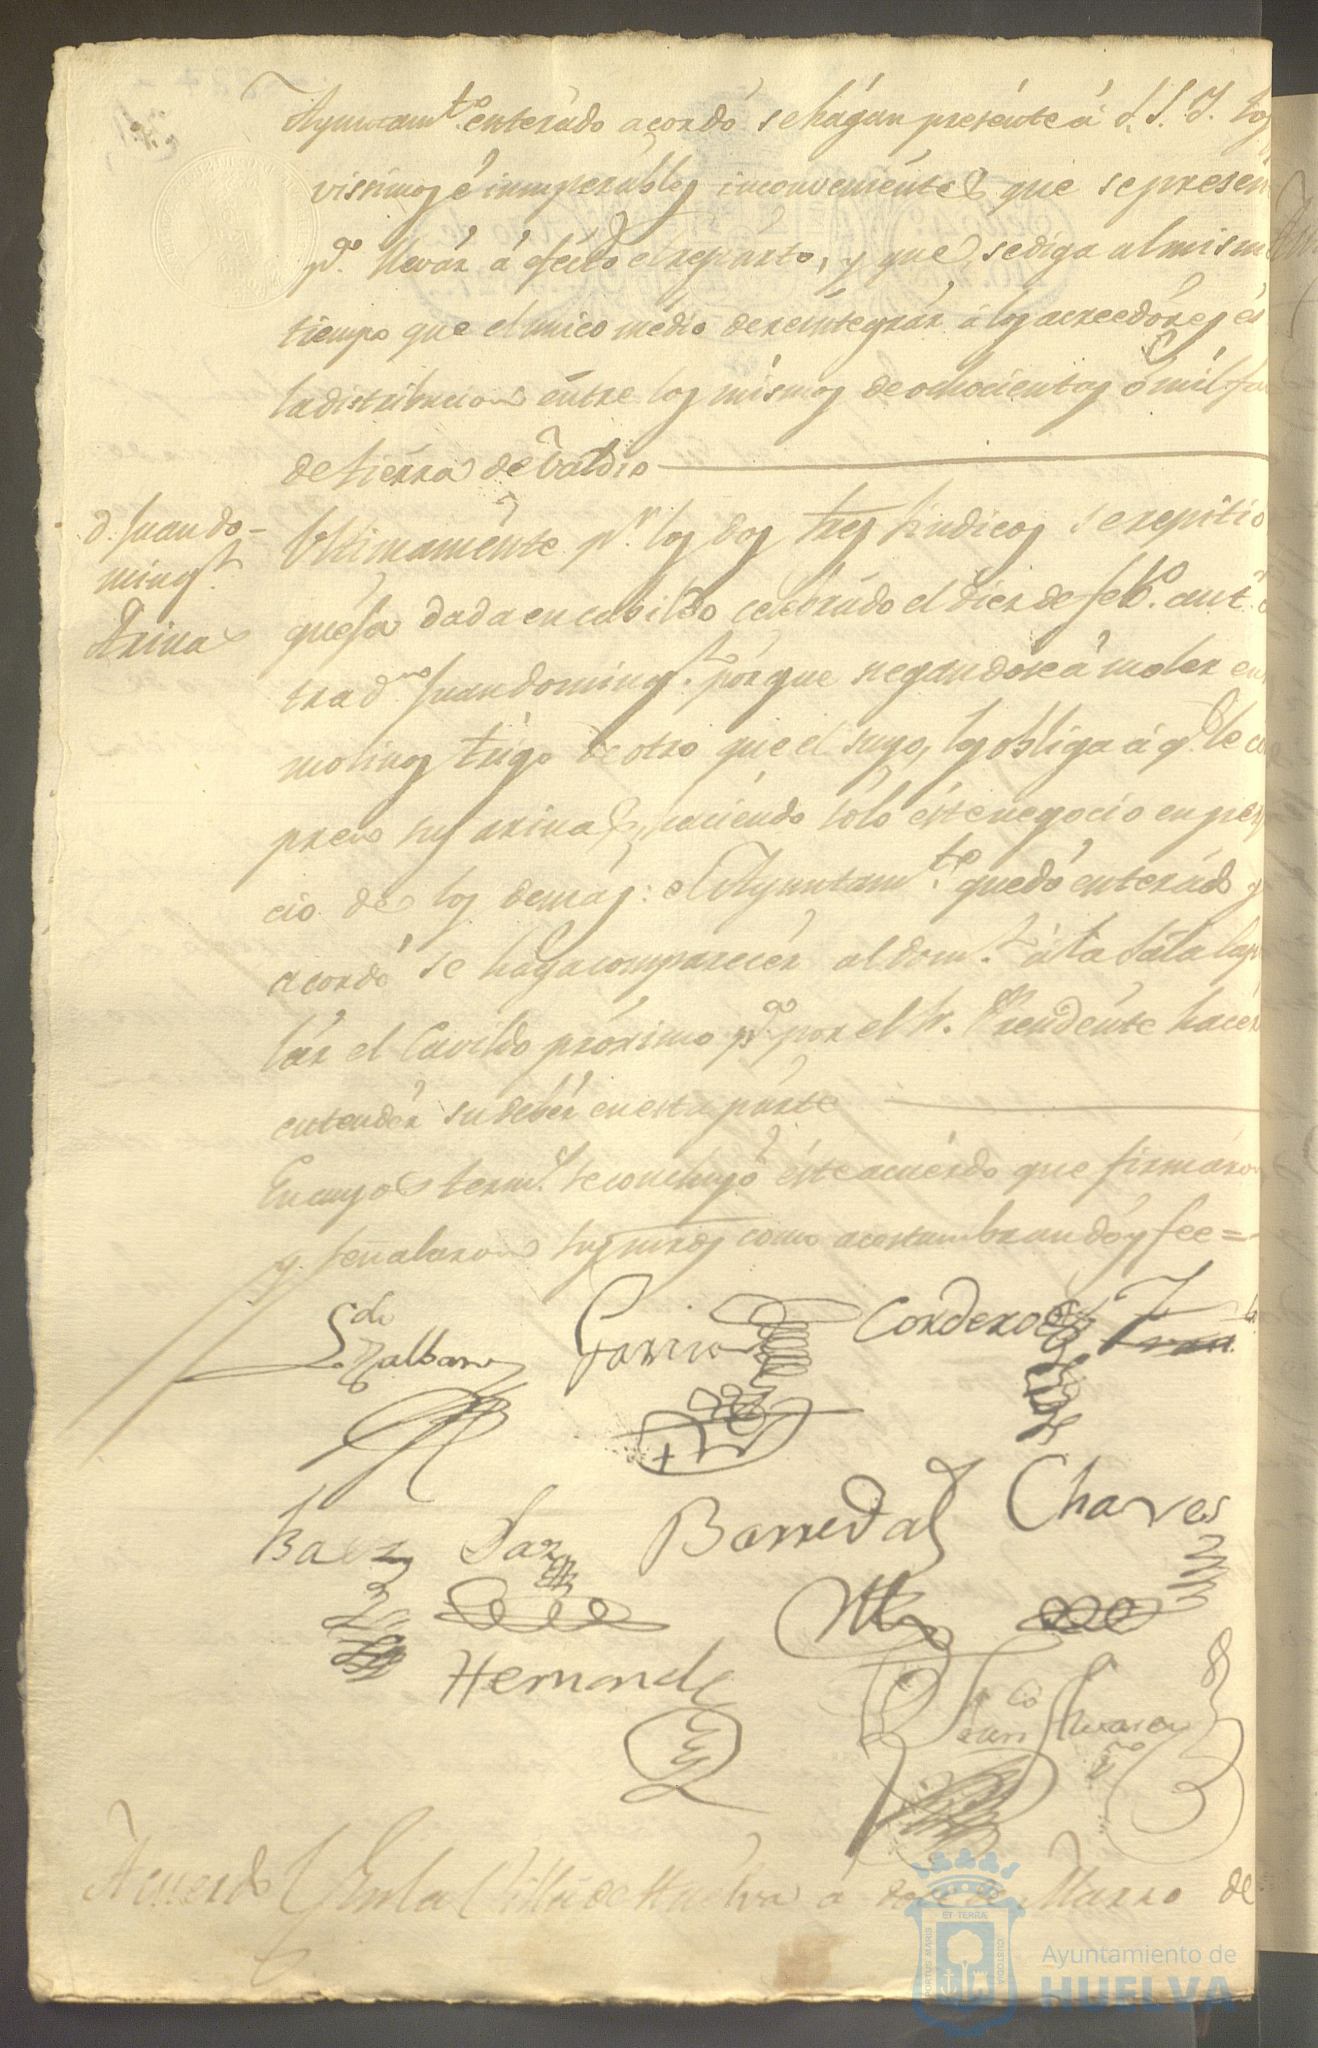 Ayuntam.to enterado acordó se hágan presénte á S. S. Y. los
vissimos é insuperables inconveniéntes que se presen
p.a llevár á efécto el repárto, y que se diga al mism
tiempo que el único médio de reintegrár á los acreedóres és
la distribucion éntre los mísmos de ochocientas ó mil fan
de tiérra de Valdio
D. Juan do-
ming.z
Arinas
Ultimamente p.r los dos Sres Sindicos se repitio
quesa dada en cabildo celebrádo el diez de feb.o ant.r
tra d.n Juan doming.z pórque negandose á moler en
molinos trígo de otro que el suyo, los obliga á q.e le co
pren sus arinas, haciéndo sólo éste negocio en perj
cio de los demás: el Ayuntam.to quedó enterádo y
acordó se hága comparecér al dom.z á la Sala Capi
lár el Cavildo próximo p.a por el Sr. Presidénte hacér
entendér su debér en esta párte
En cuyos term.s se concluyó éste acuérdo que firmáron
y señalaron sus mrds como acostumbran dóy fee =
L.do Malbar
Garcia
Cordero
Baez
Saz
Barreda
Chaves
Hernand
Acuerdo En la Villa de Huelva á doce de Marzo de
PORTUS MARIS
ET TERRÆ
CUSTODIA
Ayuntamiento de
HUELVA